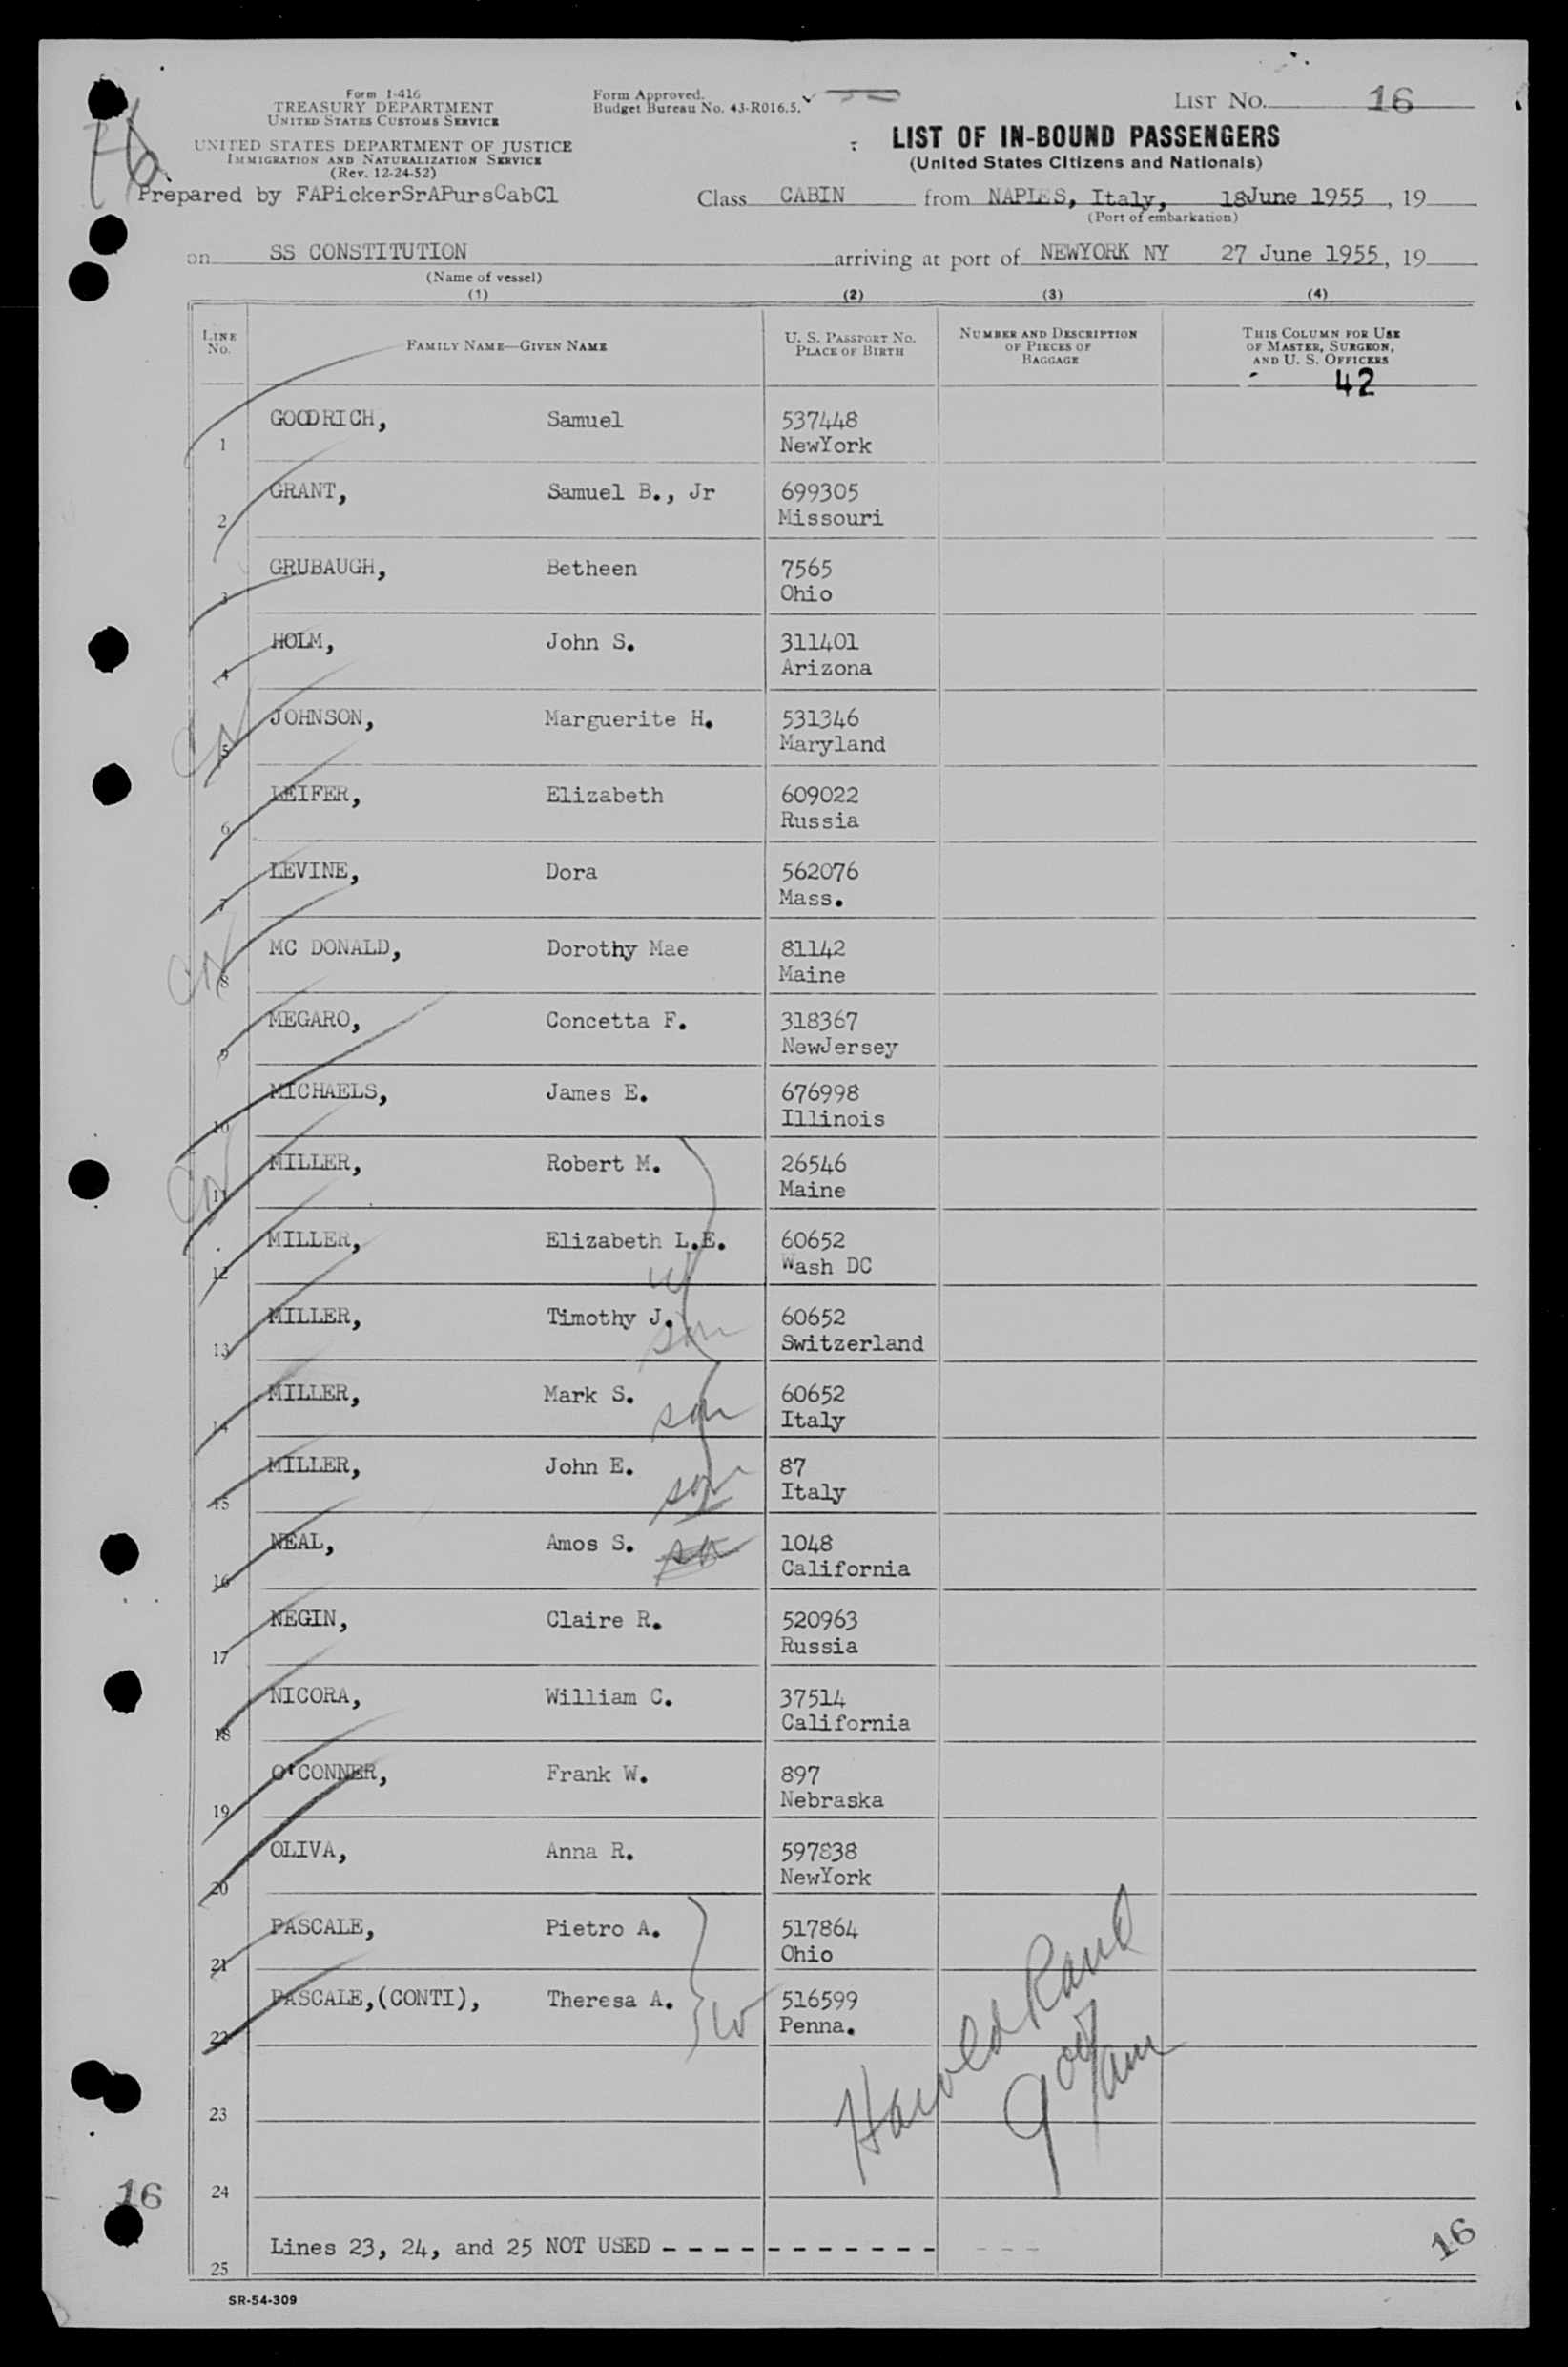 Form I-416
TREASURY DEPARTMENT
UNITED STATES CUSTOMS SERVICE
UNITED STATES DEPARTMENT OF JUSTICE
IMMIGRATION AND NATURALIZATION SERVICE
(Rev. 12-24-52)
Form Approved.
Budget Bureau No. 43-R016.5.
LIST NO. 16
LIST OF IN-BOUND PASSENGERS
(United States Citizens and Nationals)
Prepared by FAPickerSrAPursCabCl
Class CABIN from NAPLES, Italy, 18June 1955, 19
(Port of embarkation)
on SS CONSTITUTION arriving at port of NEWYORK NY 27 June 1955, 19
(Name of vessel)
(1) (2) (3) (4)
LINE NO.
FAMILY NAME—GIVEN NAME
U. S. PASSPORT NO.
PLACE OF BIRTH
NUMBER AND DESCRIPTION
OF PIECES OF
BAGGAGE
THIS COLUMN FOR USE
OF MASTER, SURGEON,
AND U. S. OFFICERS
42
1 GOODRICH, Samuel 537448
NewYork
2 GRANT, Samuel B., Jr 699305
Missouri
3 GRUBAUGH, Betheen 7565
Ohio
4 HOLM, John S. 311401
Arizona
5 JOHNSON, Marguerite H. 531346
Maryland
6 LEIFER, Elizabeth 609022
Russia
7 LEVINE, Dora 562076
Mass.
8 MC DONALD, Dorothy Mae 81142
Maine
9 MEGARO, Concetta F. 318367
NewJersey
10 MICHAELS, James E. 676998
Illinois
11 MILLER, Robert M. 26546
Maine
12 MILLER, Elizabeth L.E. 60652
w Wash DC
13 MILLER, Timothy J. 60652
son Switzerland
14 MILLER, Mark S. 60652
son Italy
15 MILLER, John E. 87
son Italy
16 NEAL, Amos S. 1048
California
17 NEGIN, Claire R. 520963
Russia
18 NICORA, William C. 37514
California
19 O'CONNER, Frank W. 897
Nebraska
20 OLIVA, Anna R. 597838
NewYork
21 PASCALE, Pietro A. 517864
Ohio
22 PASCALE,(CONTI), Theresa A. 516599
w Penna.
Harold
23
24
16
25 Lines 23, 24, and 25 NOT USED - - - - - - - - - - - - - -
16
SR-54-309